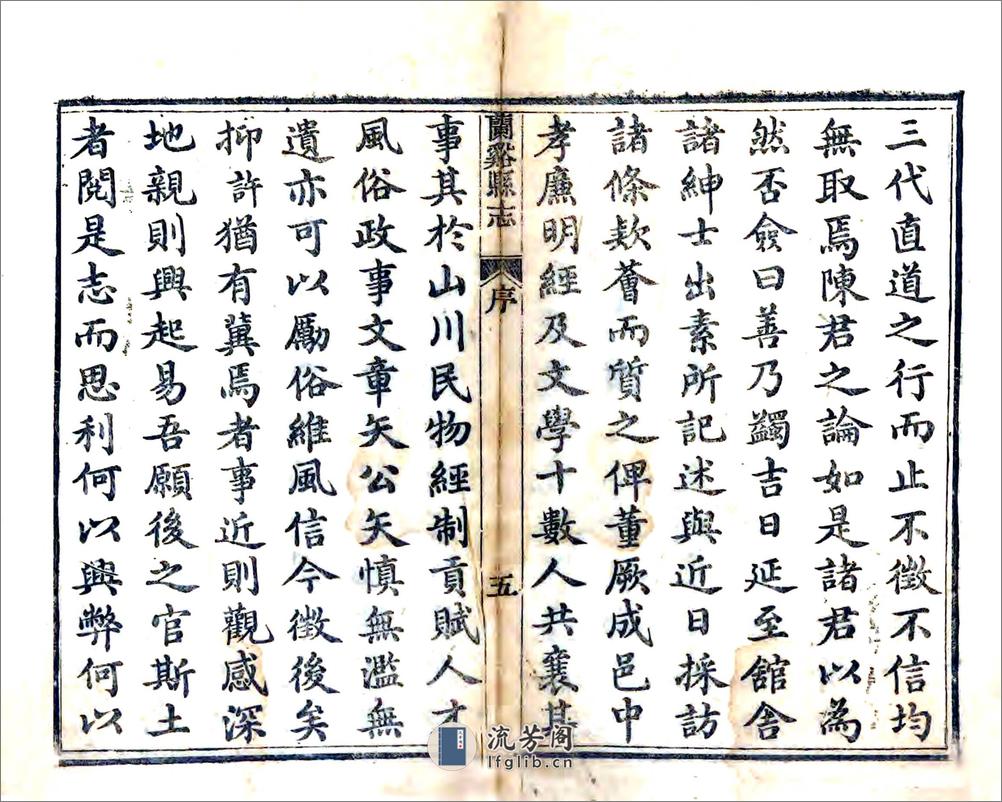 三代直道之行而止不徵不信均
無取焉陳君之論如是諸君以為
然否僉曰善乃蠲吉日延至舘舍
諸紳士出素所記述與近日採訪
諸條欵薈而質之俾董厥成邑中
孝廉明經及文學十數人共襄其
蘭谿縣志
序
五
事其於山川民物經制貢賦人才
風俗政事文章矢公矢慎無濫無
遺亦可以勵俗維風信今徵後矣
抑許猶有冀焉者事近則觀感深
地親則興起易吾願後之官斯土
者閱是志而思利何以興弊何以
流芳阁
lfglib.cn